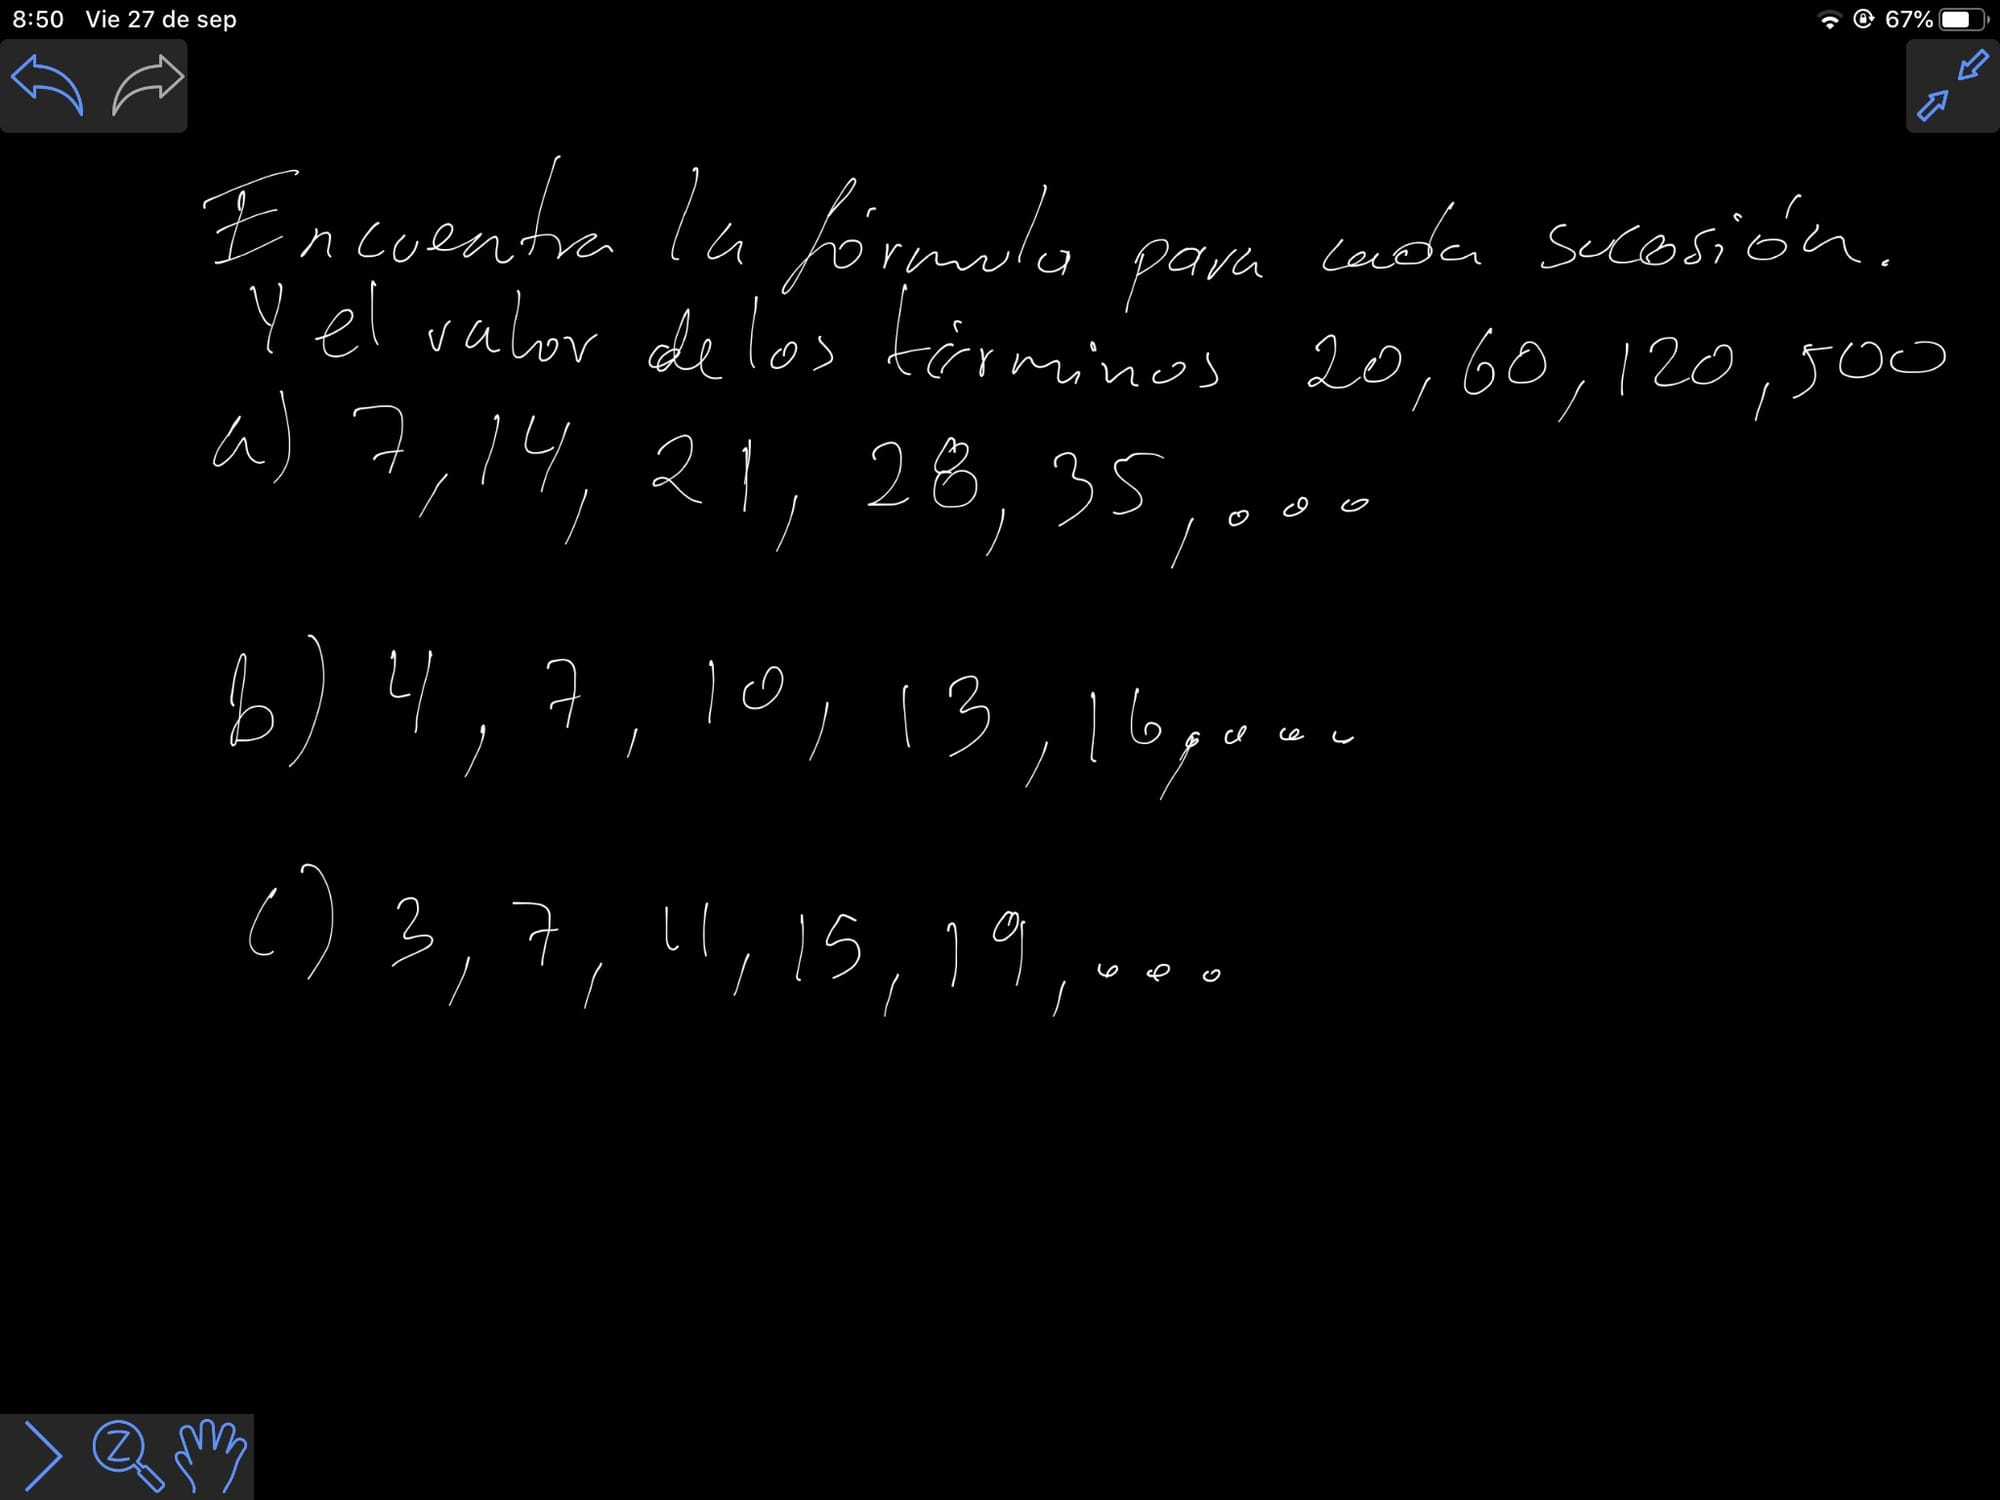 8:50 Vie 27 de sep 67%
Encuentra la fórmula para cada sucesión.
Y el valor de los términos 20, 60, 120, 500
a) 7, 14, 21, 28, 35, ...
b) 4, 7, 10, 13, 16, ...
c) 3, 7, 11, 15, 19, ...
Z